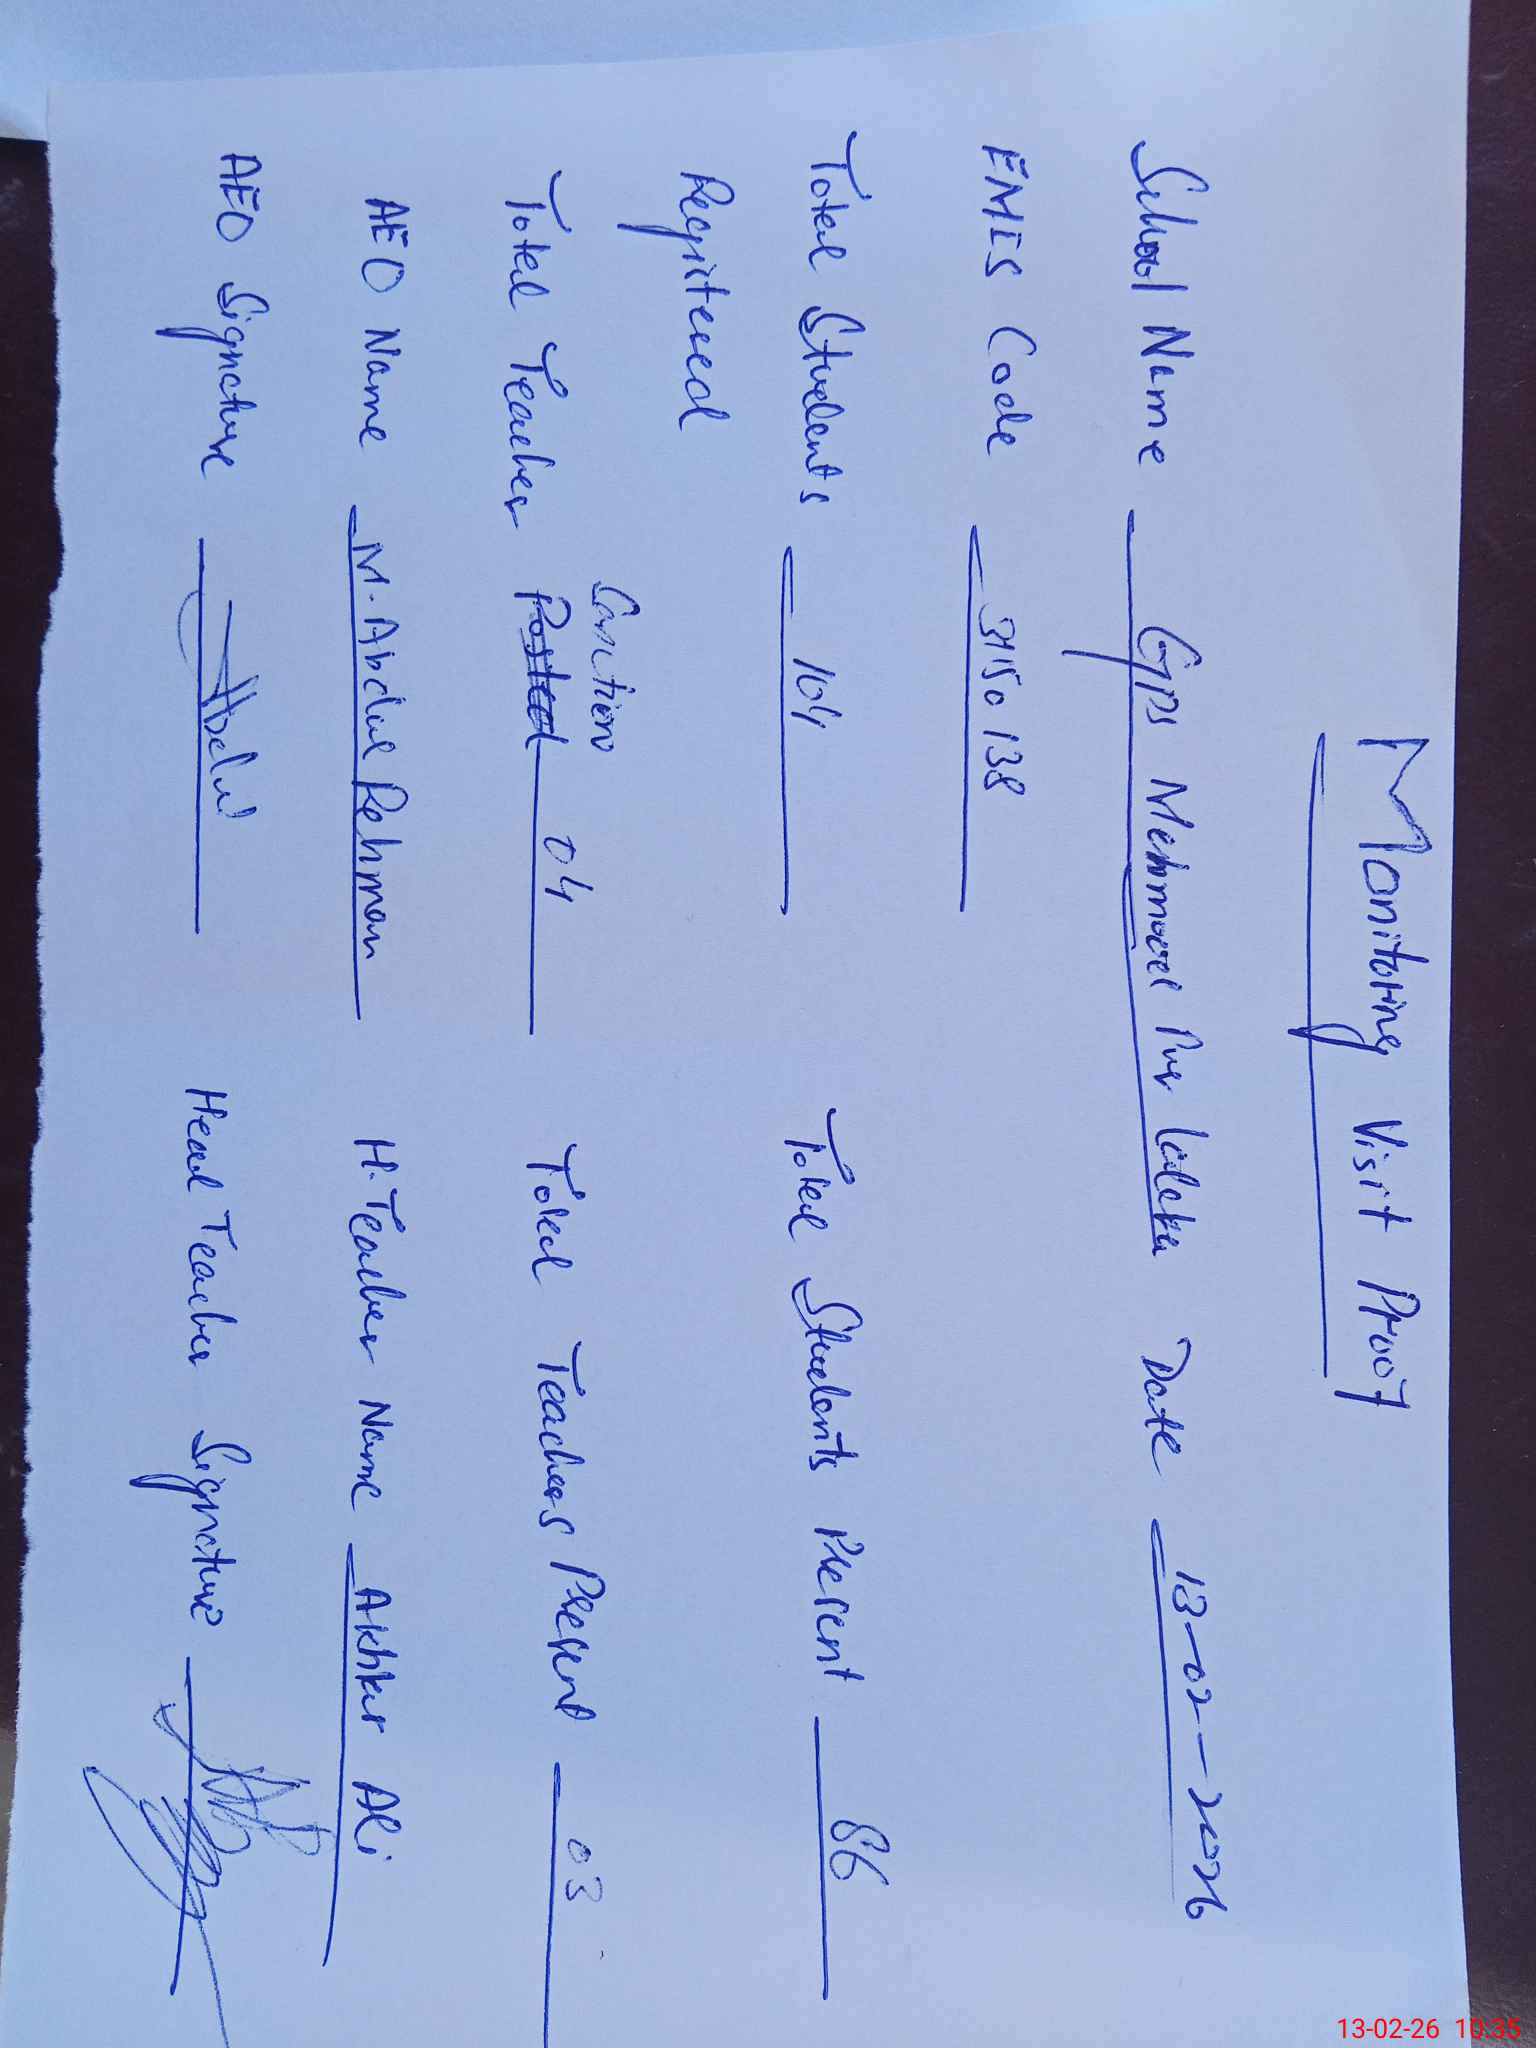 Monitoring Visit Proof
School Name Gps Mehmood Pur Laleka Date 13-02-2026
EMIS Code 3150138
Total Students 104 Total Students Present 86
Registered
Sanction
Total Teacher Posted 04 Total Teachers Present 03
AEO Name M. Abdul Rehman H. Teacher Name Akhtar Ali
AEO Signature Abdul Head Teacher Signature
13-02-26 10:35